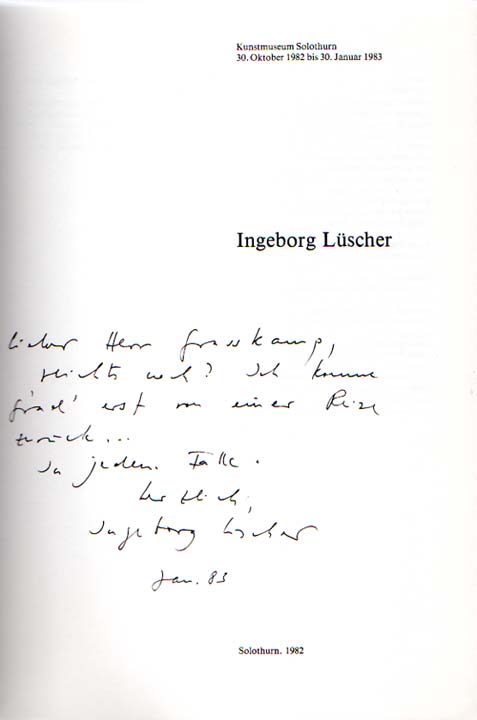 Kunstmuseum Solothurn
30. Oktober 1982 bis 30. Januar 1983
Ingeborg Lüscher
Lieber Herr Grasskamp,
reicht's noch? Ich komme
g'rad' erst von einer Reise
zurück...
In jedem Falle.
herzlich,
Ingeborg Lüscher
Jan. 83
Solothurn. 1982